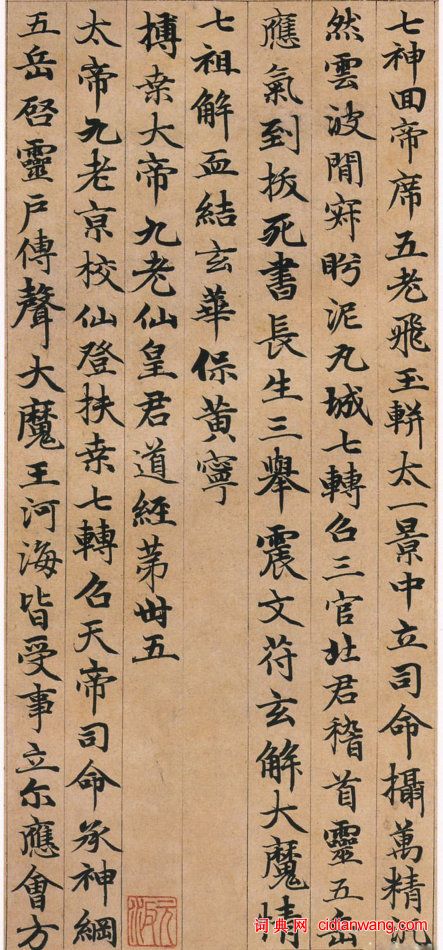 七神回帝席五老飛玉軿太一景中立司命攝萬精
然雲波閒寂盻泥丸城七轉召三官北君稽首靈五
應氣到拔死書長生三舉震文苻玄解大魔情
七祖解血結玄華保黃寧
搏桒大帝九老仙皇君道經苐丗五
太帝九老京校仙登扶桒七轉召天帝司命承神綱
五岳啓靈戶傳聲大魔王河海皆受事立尒應會方
词典网 cidianwang.com